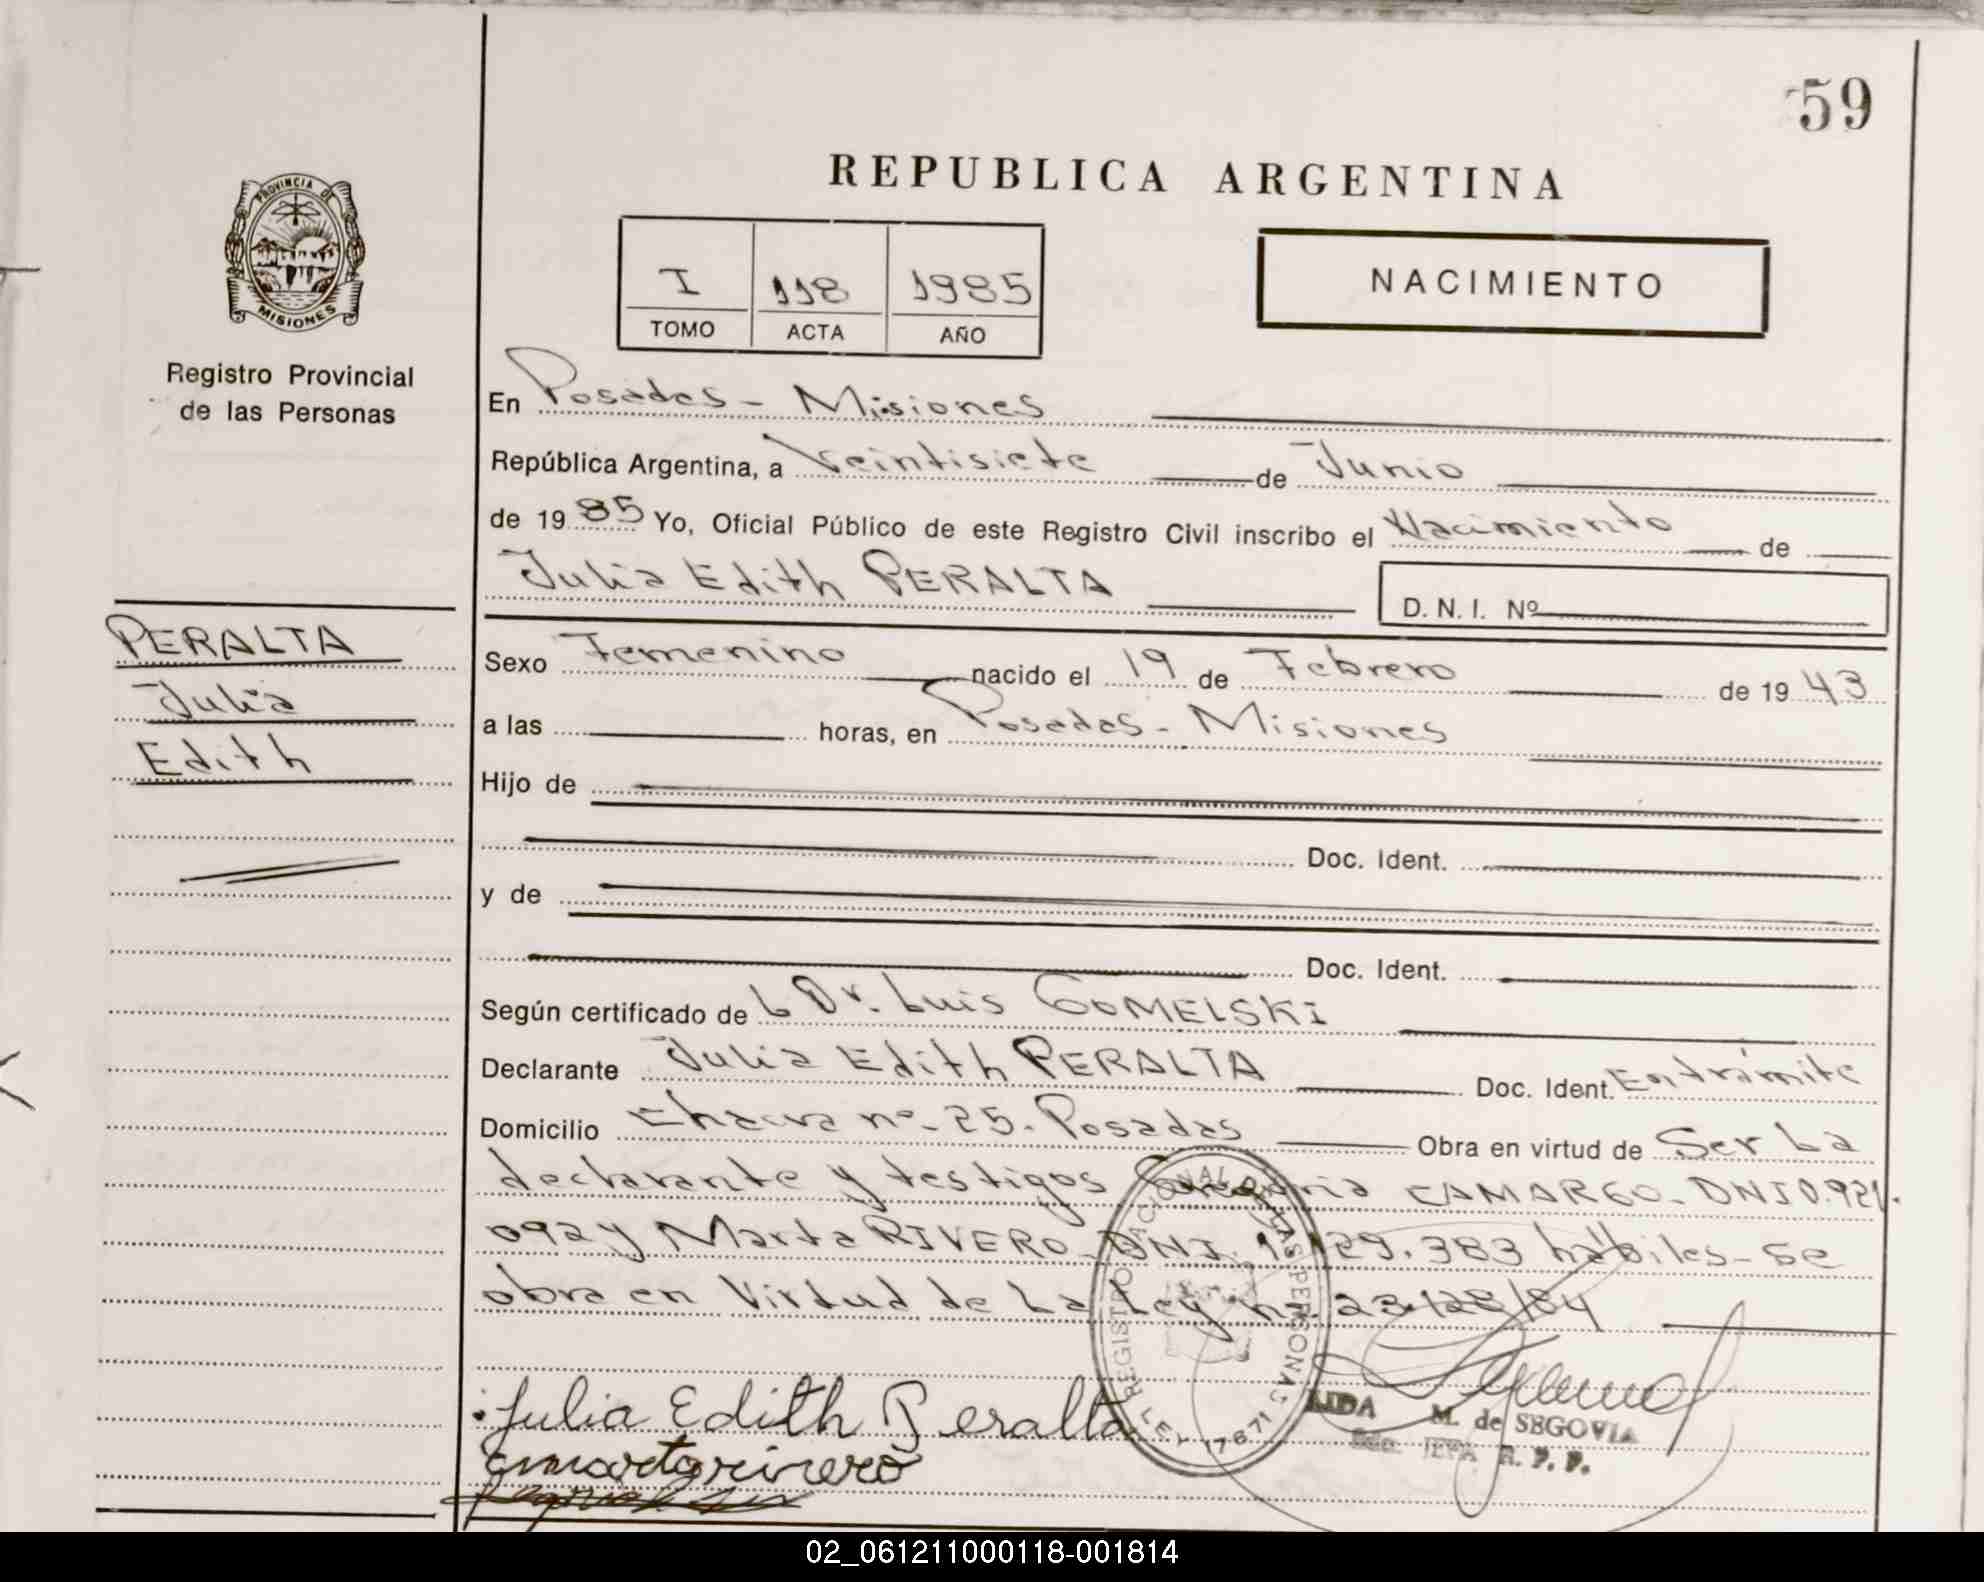 59
REPUBLICA ARGENTINA
PROVINCIA DE
MISIONES
I 118 1985
TOMO ACTA AÑO
NACIMIENTO
Registro Provincial
de las Personas
En Posadas - Misiones
República Argentina, a Veintisiete de Junio
de 1985 Yo, Oficial Público de este Registro Civil inscribo el Nacimiento de
Julia Edith PERALTA
D. N. I. Nº
PERALTA
Julia
Edith
Sexo Femenino nacido el 19 de Febrero de 1943
a las horas, en Posadas - Misiones
Hijo de
Doc. Ident.
y de
Doc. Ident.
Según certificado de Dr. Luis GOMELSKI
Declarante Julia Edith PERALTA Doc. Ident. Entrámite
Domicilio Chacra nº 25. Posadas Obra en virtud de Ser La
declarante y testigos CAMARGO - DNI 0.921.
092 y Marta RIVERO - DNI. 383 hábiles - Se
obra en Virtud de La Ley nº 23.128/84
REGISTRO NACIONAL DE LAS PERSONAS
LEY 17671
Julia Edith Peralta
martarivero
LIDA M. de SEGOVIA
JEFA R. P. P.
02_061211000118-001814